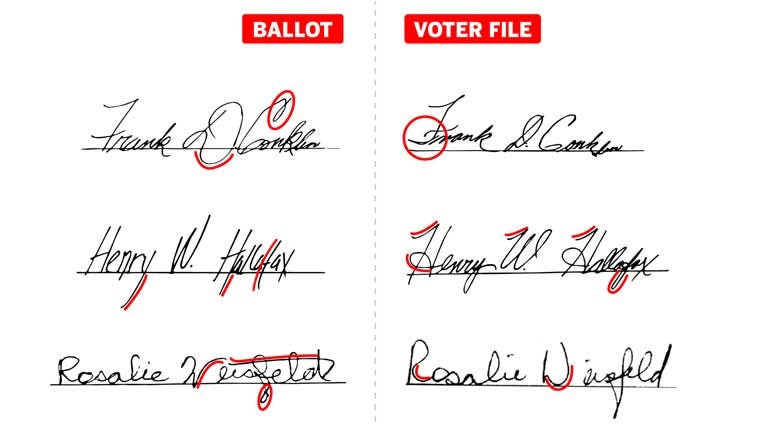 BALLOT VOTER FILE
Frank D. Conklin Frank D. Conklin
Henry W. Hallofax Henry W. Hallofax
Rosalie Weisfeld Rosalie Weisfeld